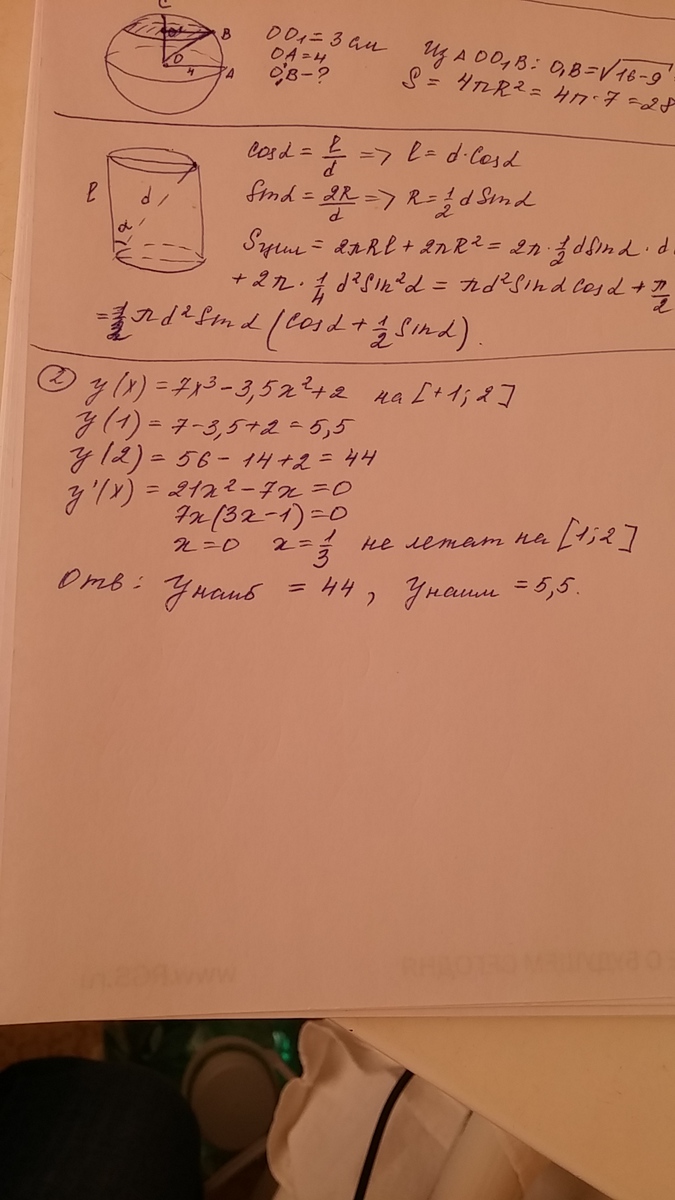 C
O₁ B
O
4 A
OO₁ = 3 см
OA = 4
O₁B - ?
Из Δ OO₁B: O₁B = √16-9
S = 4πR² = 4π·7 = 28
l
d
α
cosα = l/d => l = d·cosα
Sinα = 2R/d => R = 1/2 d Sinα
Sцил = 2πRl + 2πR² = 2π·1/2 dSinα·d
+ 2π·1/4 d²Sin²α = πd²Sinα cosα + π/2
= πd²Sinα (cosα + 1/2 Sinα).
② y(x) = 7x³ - 3,5x² + 2 на [+1; 2]
y(1) = 7 - 3,5 + 2 = 5,5
y(2) = 56 - 14 + 2 = 44
y'(x) = 21x² - 7x = 0
7x(3x - 1) = 0
x = 0 x = 1/3 не лежат на [1; 2]
Отв: yнаиб = 44, yнаим = 5,5.
www.RGS.ru
О БУДУЩЕМ СЕГОДНЯ